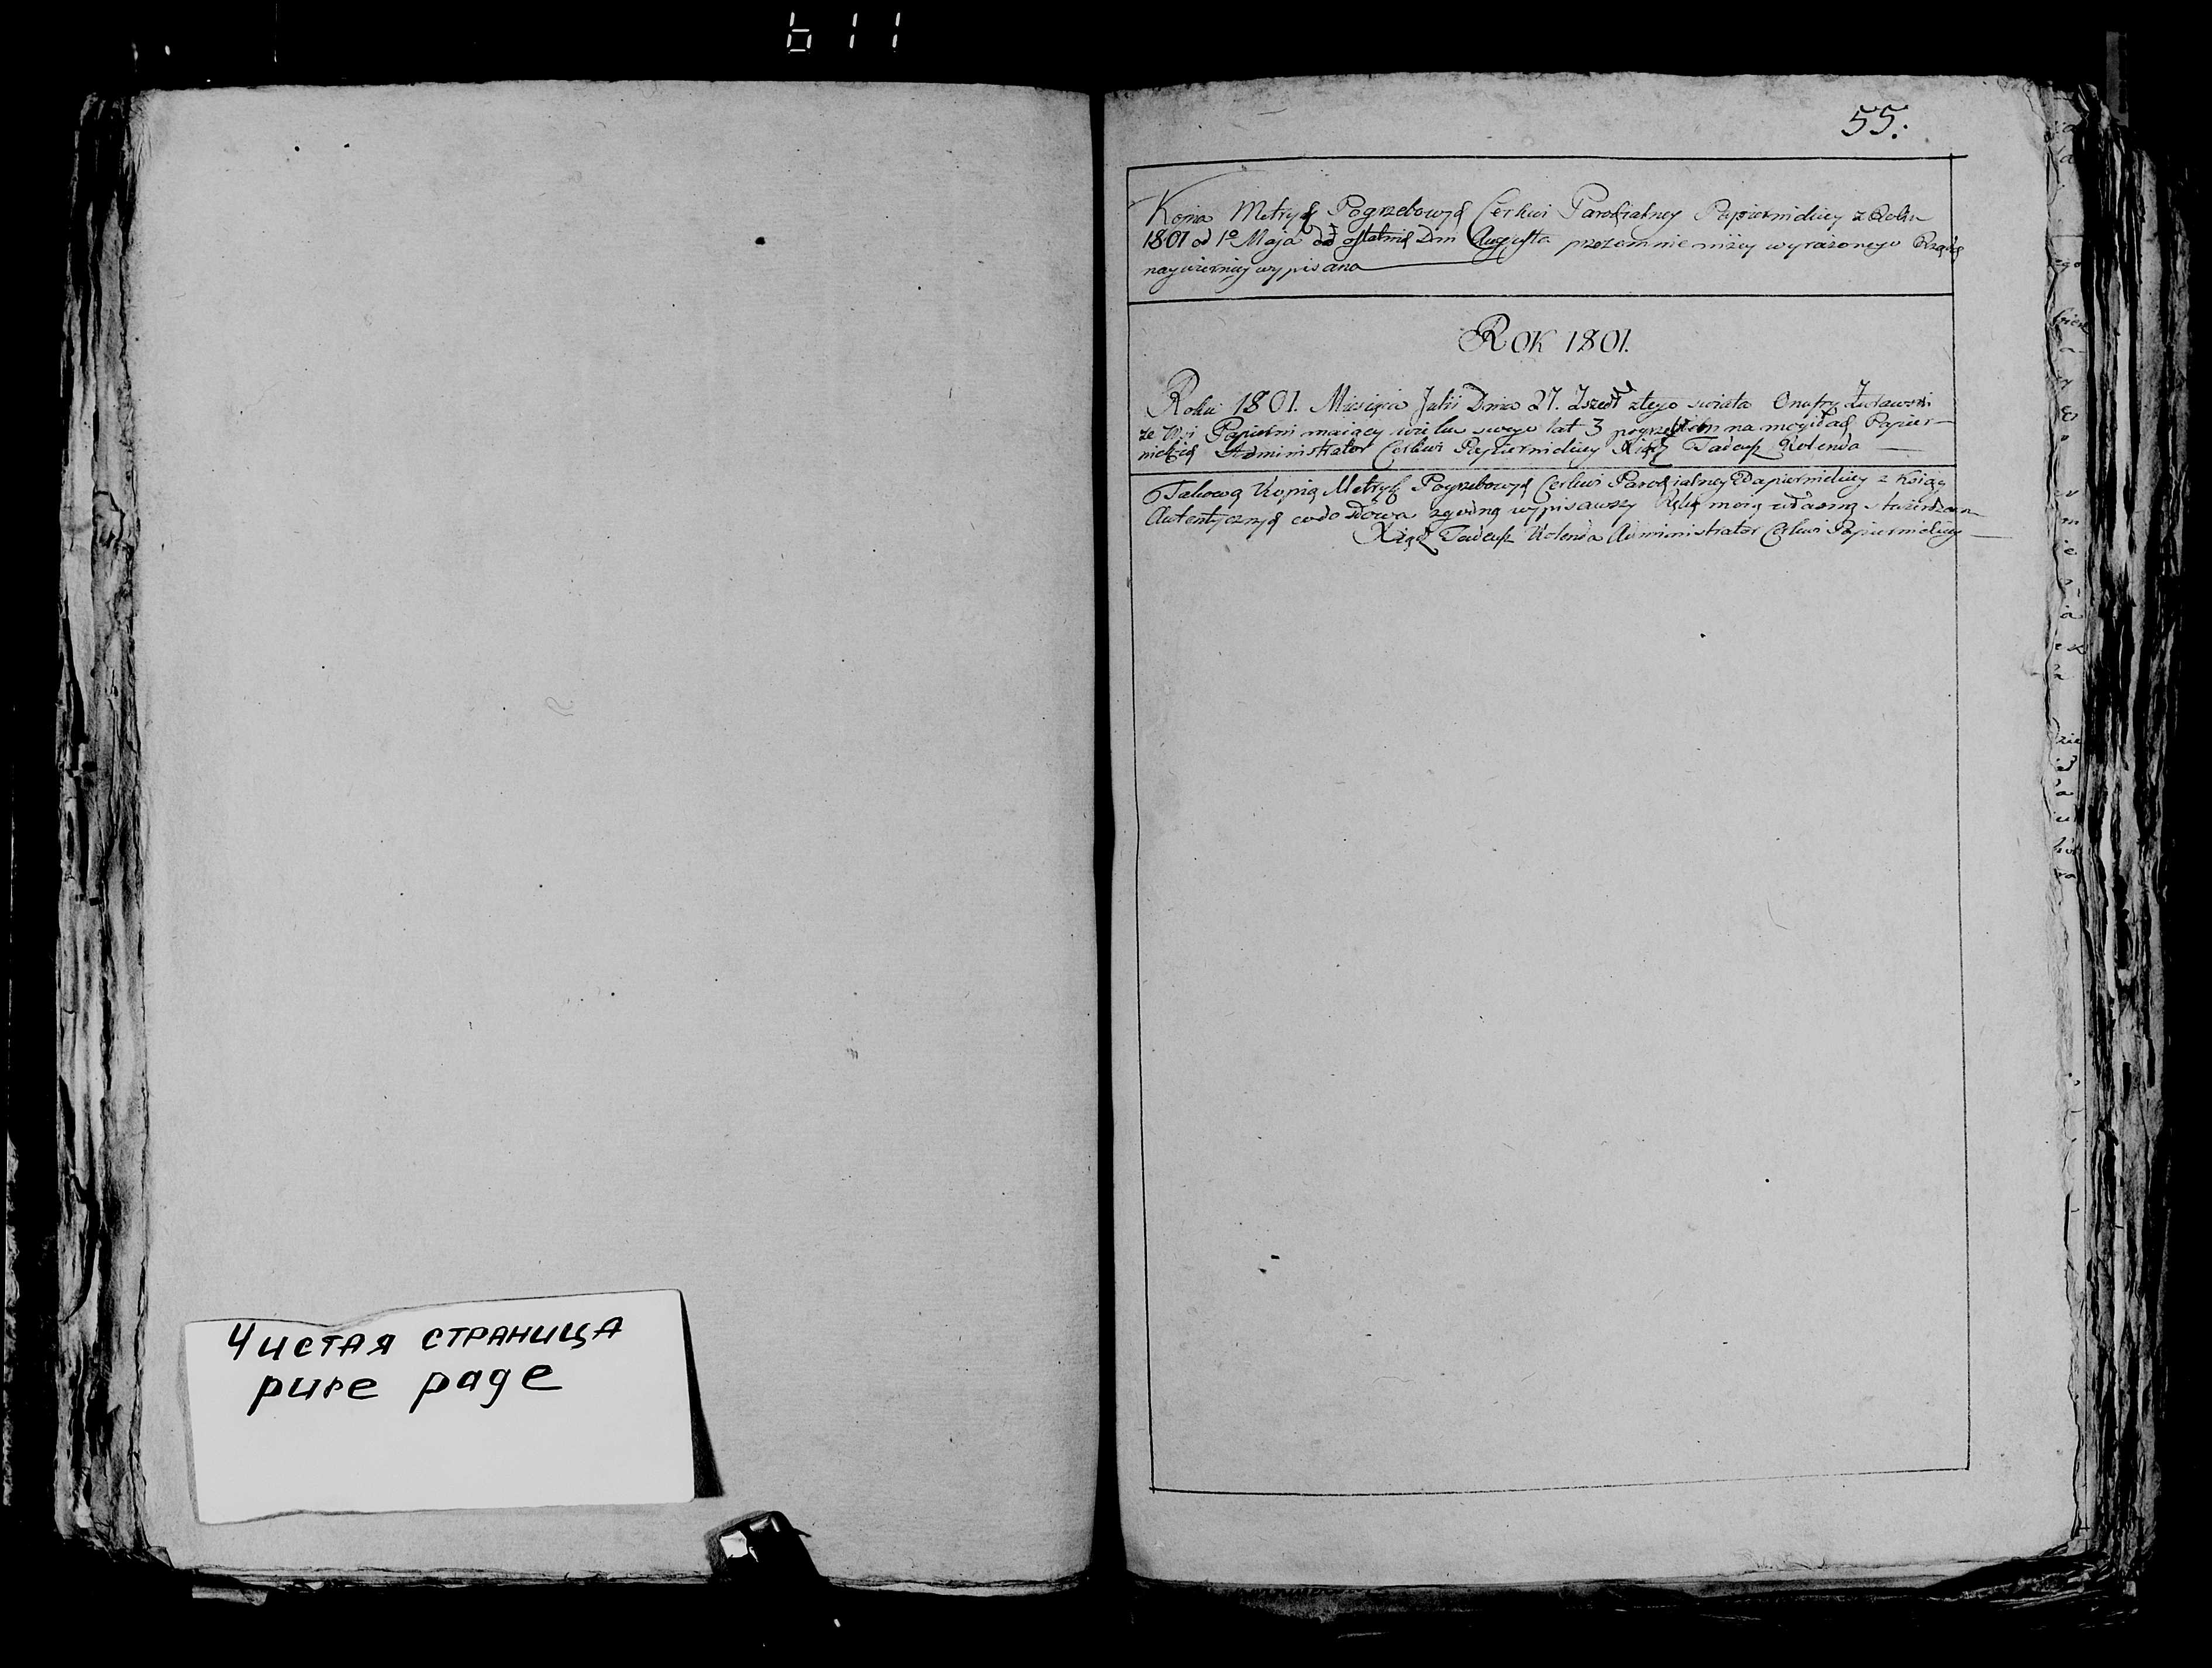 611
Чистая страница
pure page
55.
Kopia Metryk Pogrzebowych Cerkwi Parochialney Papiernickiey z Roku
1801 od 1º Maja do ostatnich Dni Augusta przezemnie niżey wyrażonego
naywierniey wypisana
Rok 1801.
Roku 1801. Miesiąca Julii Dnia 27. Zszedł ztego swiata Onufry
ze Wsi Papierni maiący wieku swego lat 3 pogrzebion na mogiłach Papier-
nickich Administrator Cerkwi Papiernickiey Xiądz Tadeusz Kolenda
Takową Kopią Metryk Pogrzebowych Cerkwi Parochialney Papiernickiey z Xsiąg
Autentycznych co do słowa zgodną wypisawszy Ręką moią własną stwierdzam
Xiądz Tadeusz Kolenda Administrator Cerkwi Papiernickiey